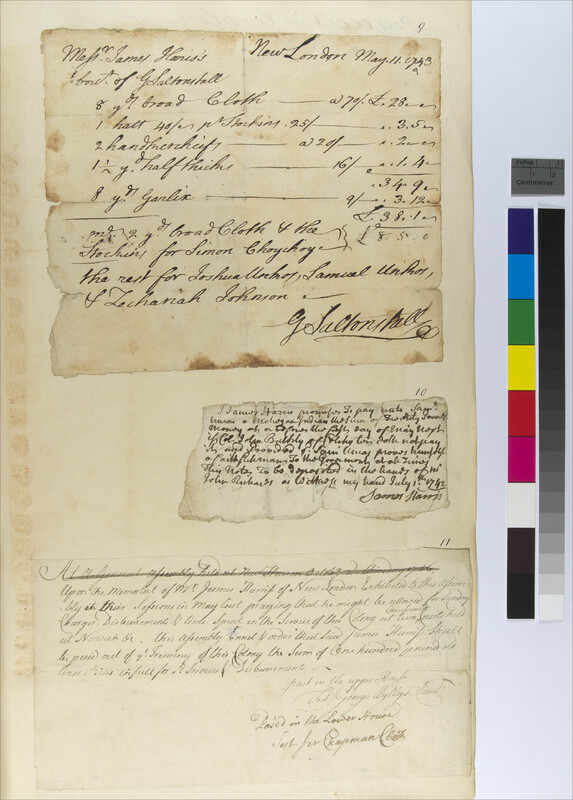 9
Messrs James Harris's New London May. 11. 1743
bout. of G Saltonstall
8 yd broad Cloth — a 70/. £. 28. —
1 hatt 40/ pr Stockins. 25/ — 3. 5
2 handkercheifs — a 20/ — 2.
1½ yd half thicks 16/ — 1. 4
34. 9
8 yds Garlix 9/ 3. 12
£. 38. 1
2 yd broad Cloth & the £ 8. 5. 0
Stockins for Simon Choychoy
the rest for Joshua Unkos, Samuel Unkos,
& Zechariah Johnson
G Saltonstall
10
I James Harris promises To pay unto Samll
Uncas a Mohegan Indian the Sum of Twenty pounds
money at or before the first day of May Next
if Col. John Bulkly of Colchester Doth not pay
it and provided Sam Uncas proves himself
a faithfull man To the Governor at all Times
This Note To be deposited in the hands of Mr
John Richards as Witness my hand July 1st 1742
James Harris
11
At a General Assembly held at New Haven October
Upon the Memorial of Mr. James Harriss of New London Exhibited to this Assem
bly at their Sessions in May last praying that he might be allowed for Sundry
Charges Disbursements & time Spent in the Service of this Colony at two Courts held
Commissioners
at Norwich &c. this Assembly Grant & order that said James Harriss Shall
be paid out of ye Treasury of this Colony the Sum of One hundred pound old
Tenor Bills in full for sd Service & Disbursement
past in the upper House
Test George Wyllys Secret
Passed in the Lower House
Test per Chapman Clerk
Inches
1
2
Centimetres